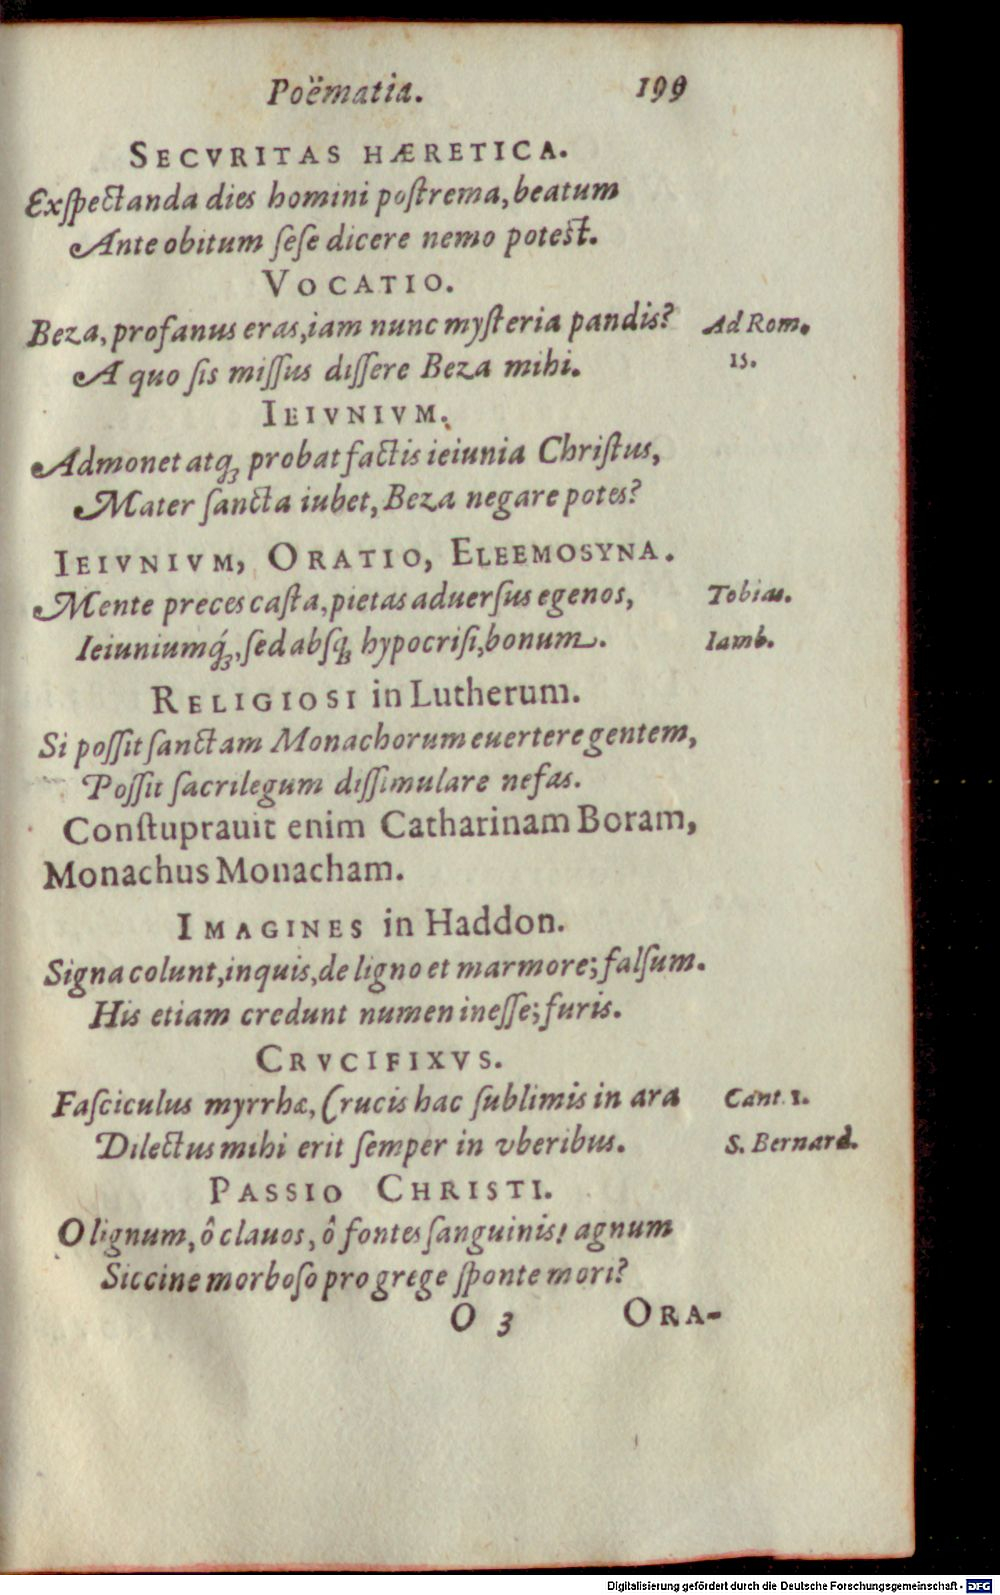 Poëmatia. 199
SECVRITAS HÆRETICA.
Exſpectanda dies homini poſtrema, beatum
Ante obitum ſeſe dicere nemo poteſt.
VOCATIO.
Beza, profanus eras, iam nunc myſteria pandis? Ad Rom.
A quo ſis miſſus diſſere Beza mihi. 15.
IEIVNIVM.
Admonet atq; probat factis ieiunia Chriſtus,
Mater ſancta iubet, Beza negare potes?
IEIVNIVM, ORATIO, ELEEMOSYNA.
Mente preces caſta, pietas aduerſus egenos, Tobias.
Ieiuniumq́;, ſed abſq; hypocriſi, bonum. Iamb.
RELIGIOSI in Lutherum.
Si poſſit ſanctam Monachorum euertere gentem,
Poſſit ſacrilegum diſſimulare nefas.
Conſtuprauit enim Catharinam Boram,
Monachus Monacham.
IMAGINES in Haddon.
Signa colunt, inquis, de ligno et marmore; falſum.
His etiam credunt numen ineſſe; furis.
CRVCIFIXVS.
Faſciculus myrrhæ, Crucis hac ſublimis in ara Cant. 1.
Dilectus mihi erit ſemper in vberibus. S. Bernard.
PASSIO CHRISTI.
O lignum, ô clauos, ô fontes ſanguinis! agnum
Siccine morboſo pro grege ſponte mori?
O 3 ORA-
Digitalisierung gefördert durch die Deutsche Forschungsgemeinschaft - DFG